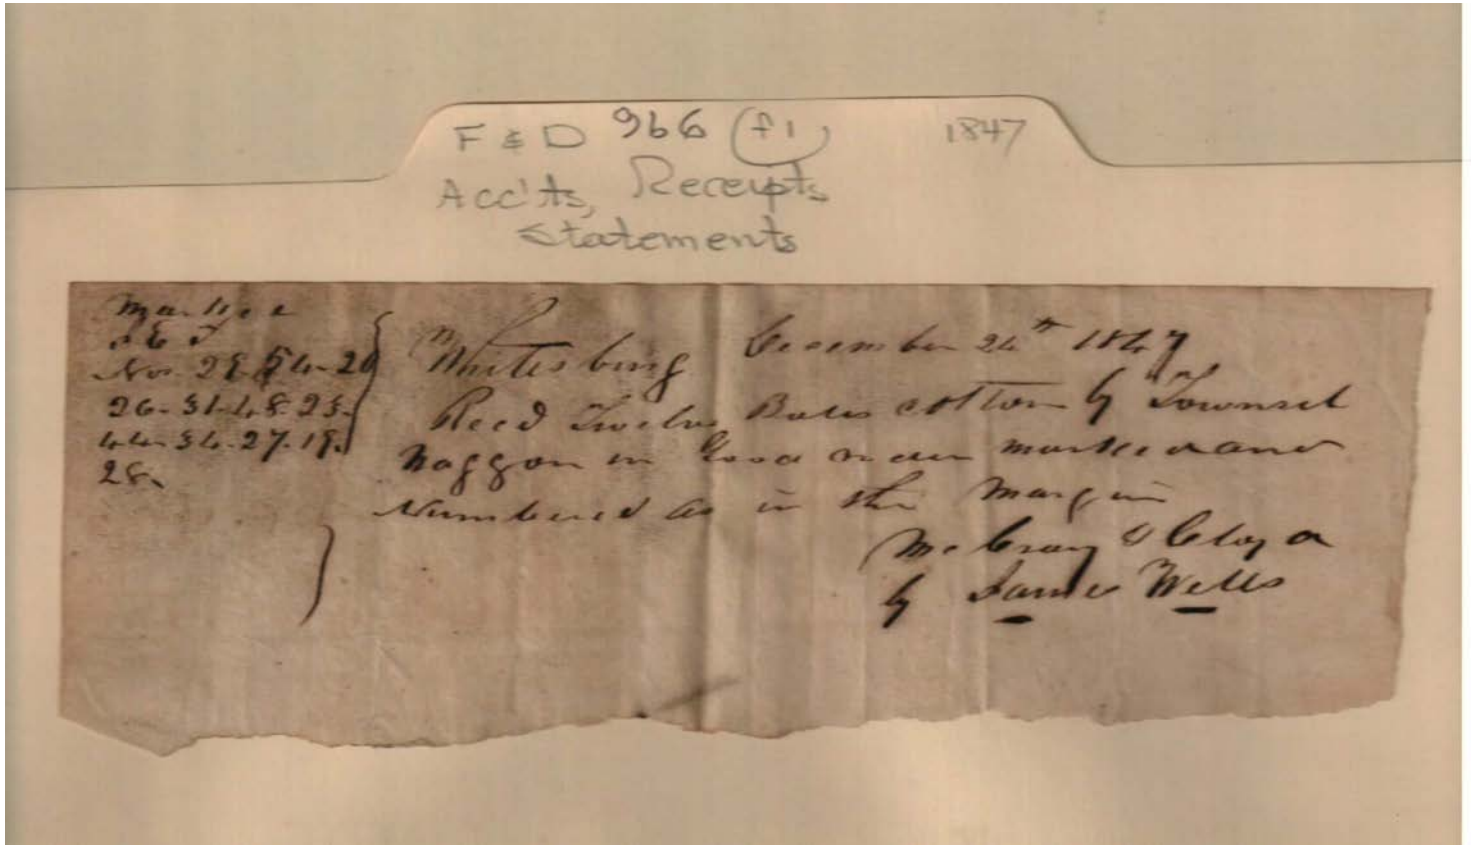 F & D 966 (f1) 1847
Acc'ts, Receipts
Statements
Marked
Nos. 29. 54-20
26-31-48-23.
44-34-27-19.
28.
Whitesburg December 24th 1847
Recd Twelve Bales cotton by Townsel
Waggon in Good order marked and
Numbered as in the Margin
McCray & Clay a
by James Wells